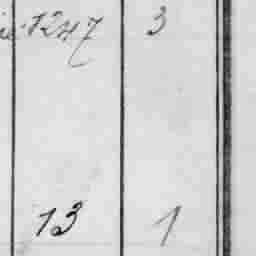 1247 3
13 1